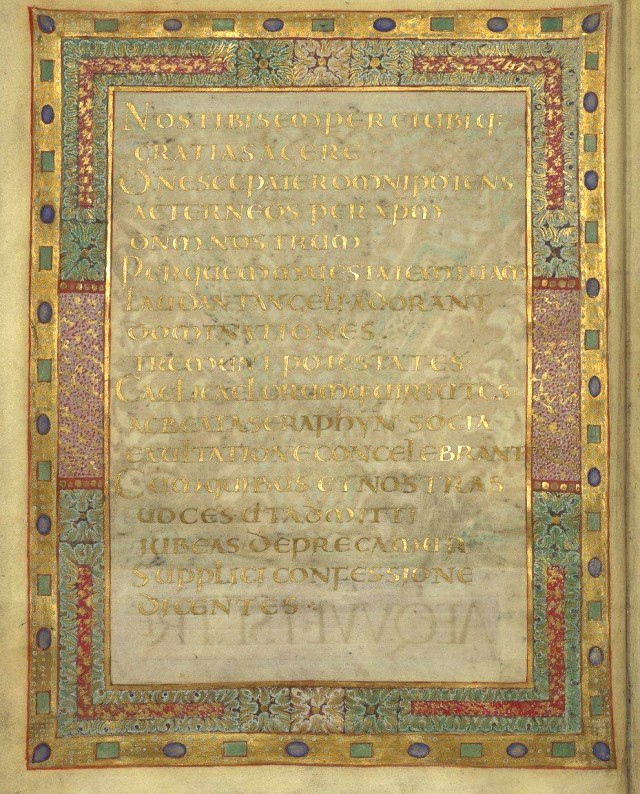 NOS TIBI SEMPER ET UBIQ:
GRATIAS AGERE
DNE SCE PATER OMNIPOTENS
AETERNE DS PER XPM
DNM NOSTRUM
PER QUEM MAIESTATEM TUAM
LAUDANT ANGELI ADORANT
DOMINATIONES
TREMUNT POTESTATES
CAELI CAELORUMQ: UIRTUTES
AC BEATA SERAPHYN SOCIA
EXULTATIONE CONCELEBRANT
CUM QUIBUS ET NOSTRAS
UOCES UT ADMITTI
IUBEAS DEPRECAMUR
SUPPLICI CONFESSIONE
DICENTES